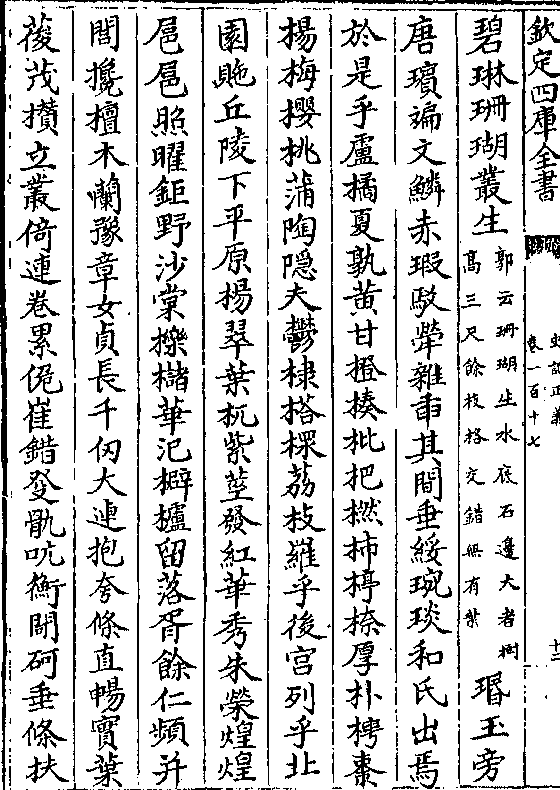 欽定四庫全書
史記正義
卷一百十七
十二
碧琳珊瑚叢生郭云珊瑚生水底石邊大者樹高三尺餘枝格交錯無有葉瑉玉旁
唐璸斒文鱗赤瑕駁犖雜臿其間垂綏琬琰和氏出焉
於是乎盧橘夏孰黃甘橙楱枇把橪柿楟㮈厚朴梬棗
楊梅櫻桃蒲陶隠夫鬱棣搭㯈荔枝羅乎後宮列乎北
園貤丘陵下平原揚翠葉杌紫莖發紅華秀朱榮煌煌
扈扈照曜鉅野沙棠櫟櫧華汜檘櫨留落胥餘仁頻并
閭欃檀木蘭豫章女貞長千仞大連抱夸條直暢實葉
葰茂攢立叢倚連卷累佹崔錯癹骫吭衡閜砢垂條扶